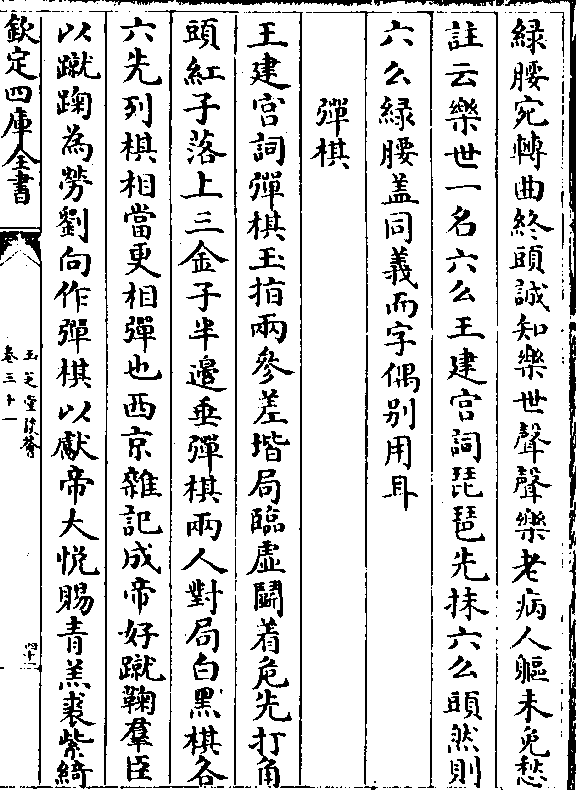 緑腰宛轉曲終頭誠知樂世聲聲樂老病人軀未免愁
註云樂世一名六么王建宫詞琵琶先抹六么頭然則
六么緑腰盖同義而字偶别用耳
彈棋
王建宫詞彈棋玉指兩參差堦局臨虚鬭着危先打角
頭紅子落上三金子半邉垂彈棋兩人對局白黑棋各
六先列棋相當更相彈也西京雜記成帝好蹴鞠羣臣
以蹴踘為勞劉向作彈棋以獻帝大悦賜青羔裘紫綺
欽定四庫全書
玉芝堂談薈
卷三十一
四十二